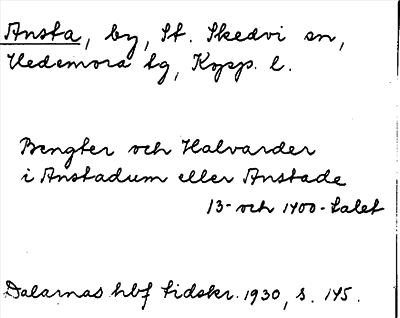 Ansta, by, St. Skedvi sn,
Hedemora tg, Kopp. l.
Bengter och Halvarder
i Anstadum eller Anstade
13- och 1400-talet
Dalarnas hbf tidskr. 1930, s. 145.